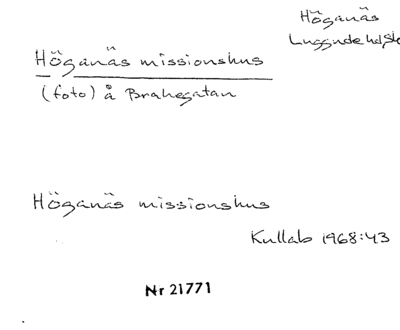 Höganäs
Luggude hd, Sk
Höganäs missionshus
(foto) å Brahegatan
Höganäs missionshus
Kullab 1968:43
Nr 21771